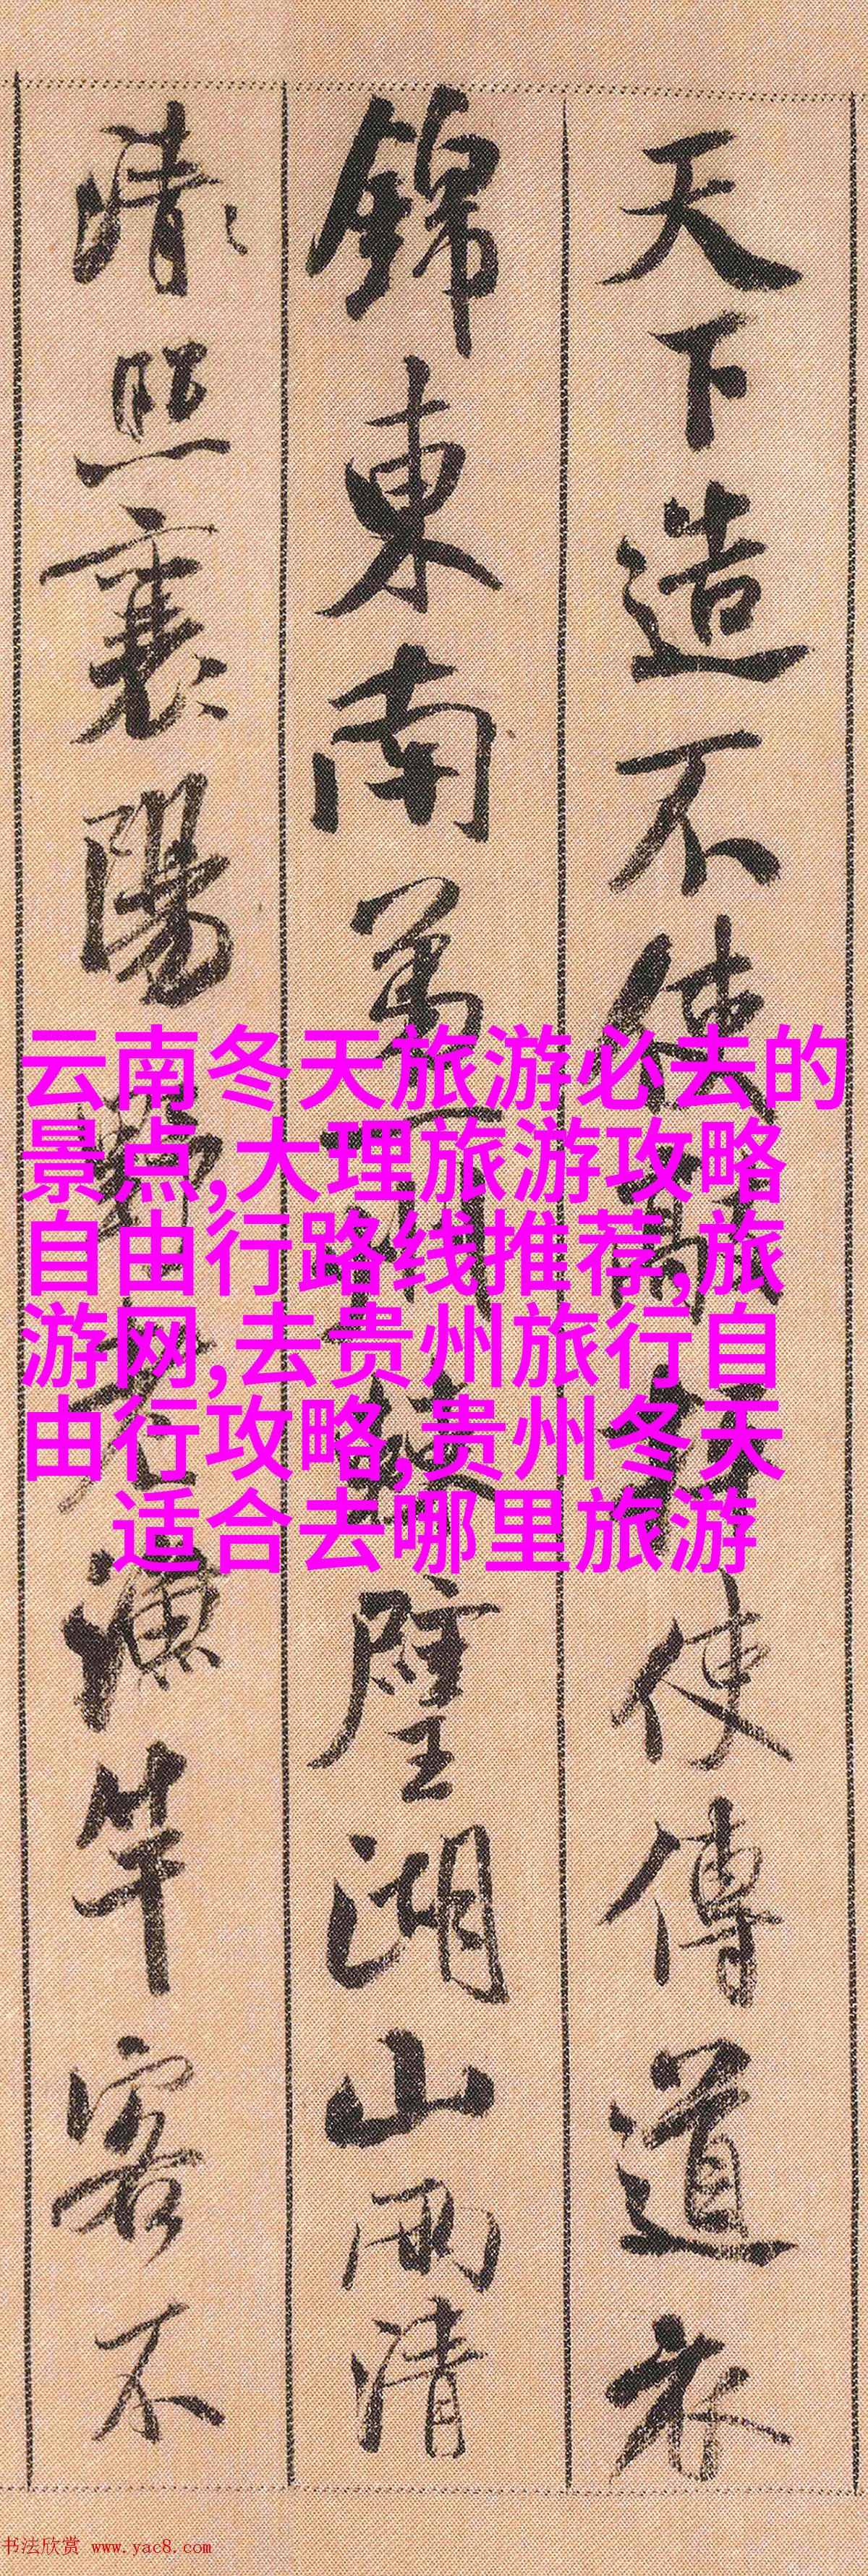 天下造不使敲枰使傳道衣
錦東南第一州棘璧湖山兩清
清照襄陽野老漁竿客不
云南冬天旅游必去的
景点,大理旅游攻略
自由行路线推荐,旅
游网,去贵州旅行自
由行攻略,贵州冬天
适合去哪里旅游
书法欣赏 www.yac8.com